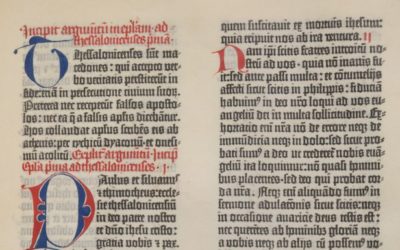 Incipit argumētū in eplam ad
thessalonicenses prīa
Thessalonicenses sūt ma-
cedones: qui accepto ver-
bo veritatis perstiterūt in
fide: etiā in persecutione ciuiū suorū.
Preterea nec receperūt falsos aposto-
los: nec ea q̄ a falsis apostolis dicebāt᷑.
Hos collaudat apostolus scribēs eis ab
athenis: per tychicū dyaconū et ones-
imū acolitū. Explicit argumētū Incipit
Epla prima ad thessalonicenses · I
Paulus et siluanus
et thimotheus: ecclesie
thessalonicensiū
in deo patre nostro
et dño ihesu cristo:
gratia vobis ⁊ pax.
quem suscitauit ex mortuis ihesum:
qui eripuit nos ab ira ventura. II
Nam ip̄i scitis fratres introitū nostrū
ad vos · quia nō inanis fu-
it: sed ante passi multa · et cōtumeliis
affecti sicut scitis in philippis: fiduciā
habuimus in deo nr̄o loqui ad vos eu-
angeliū dei in multa sollicitudine. Ex-
hortatio enī nr̄a nō de errore neq; de
immūdicia neq; in dolo: sed sicut pro-
bati sumus a deo ut crederet᷑ nobis eu-
angeliū ita loquimur: nō quasi homini-
bus placentes · sed deo qui probat cor-
da nr̄a. Neq; enī aliquando fuimus in
sermone adulationis sicut scitis: neq; in
occasione auaricie deus testis est:
nec querētes ab hominibus gloriā neq;
a vobis neq; ab aliis